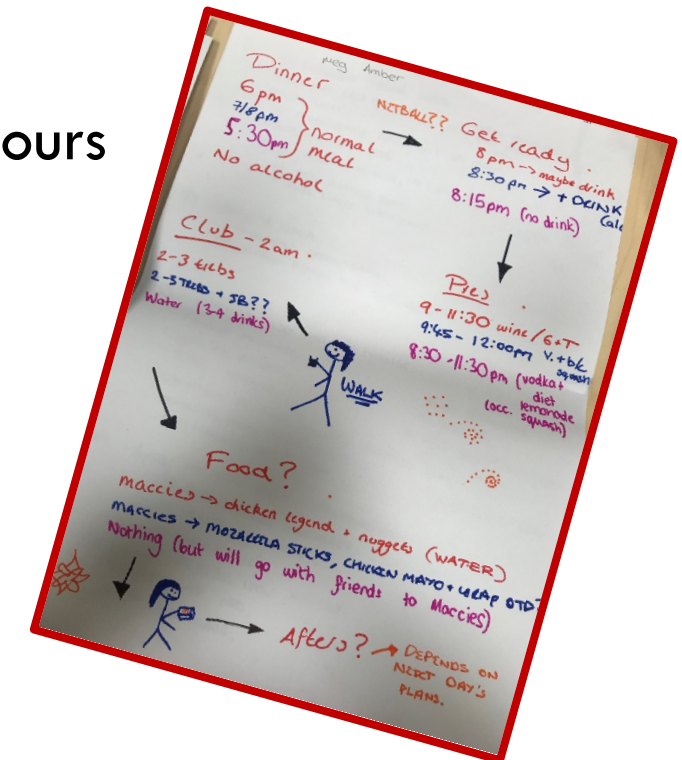 ours
Meg Amber
Dinner
6pm
7/8pm
5:30pm
normal
meal
No alcohol
NETBALL??
Get ready.
8pm → maybe drink
8:30pm → + DRINK
8:15pm (no drink)
Pres
9-11:30 wine/G+T
9:45-12:00pm V.+blk
squash
8:30-11:30pm (vodka+
diet
lemonade
(occ. squash)
WALK
Club - 2am.
2-3 trebs
2-3 TREBS + JB??
Water (3-4 drinks)
Food?
maccies → chicken legend + nuggets (WATER)
MACCIES → MOZARELLA STICKS, CHICKEN MAYO + WRAP OTD?
Nothing (but will go with friends to Maccies)
Afters?
→ DEPENDS ON
NEXT DAY'S
PLANS.